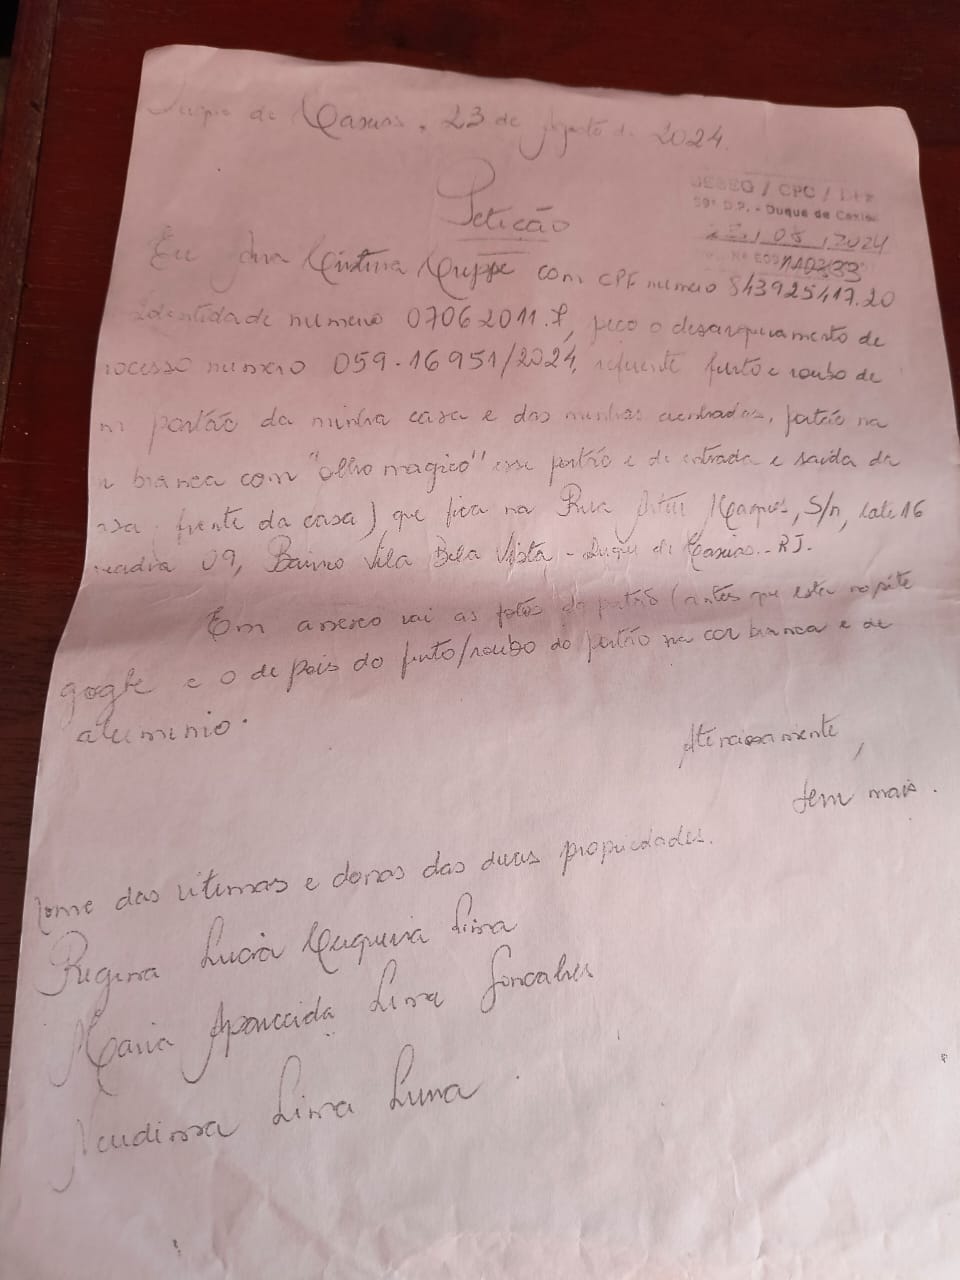 de Caxias, 23 de Agosto de 2024.
Petição
SESEG / CPC /
59ª D.P. - Duque de Caxias
/ 08 / 2024
Eu Ana Cristina com CPF numero 843925417.20
identidade numero 07062011.7, peço o desarquivamento de
rocesso numero 059-16951/2024, referente furto e roubo de
m portão da minha casa e das minhas cunhadas, portão na
r branca com "olho magico" esse portão e de entrada e saida da
asa frente da casa) que fica na Rua S/n, Lote 16
uadra 09, Bairro Vila Bela Vista - Duque de Caxias - RJ.
Em anexo vai as fotos do portão (antes que esta no site
gogle e o depois do furto/roubo do portão na cor branca e de
aluminio.
Atenciosamente,
Sem mais.
Nome das vitimas e donas das duas propriedades.
Regina Lucia Cerqueira Lima
Maria Aparecida Lima Goncalves
Lima Luna